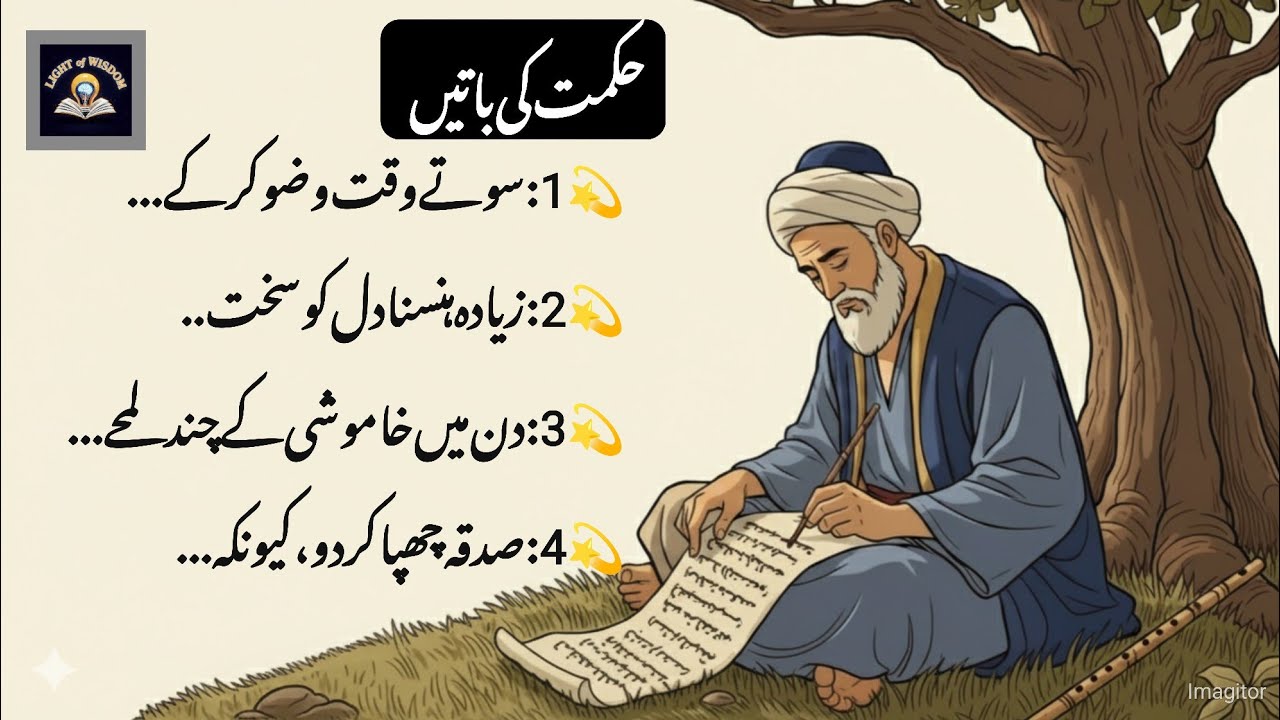 LIGHT of WISDOM
حکمت کی باتیں
1: سوتے وقت وضو کر کے...
2: زیادہ ہنسنا دل کو سخت..
3: دن میں خاموشی کے چند لمحے...
4: صدقہ چھپا کر دو، کیونکہ...
Imagitor